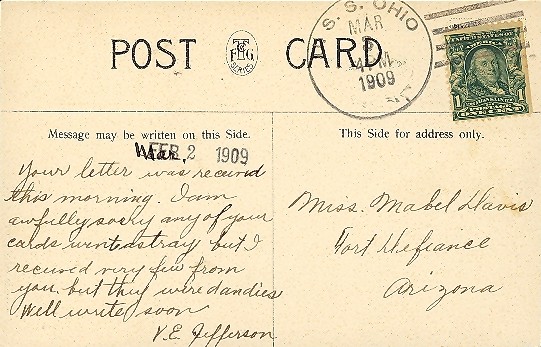 POST CARD
T F G
SERIES
S. S. OHIO
MAR
2
4 PM
1909
UNITED STATES OF AMERICA
1
Message may be written on this Side.
This Side for address only.
Mar. FEB 2 1909
Your letter was received
this morning. I am
awfully sorry any of your
cards went astray but I
received very few from
you, but they were dandies
Will write soon
V. E. Jefferson
Miss. Mabel Davis
Fort Defiance
Arizona